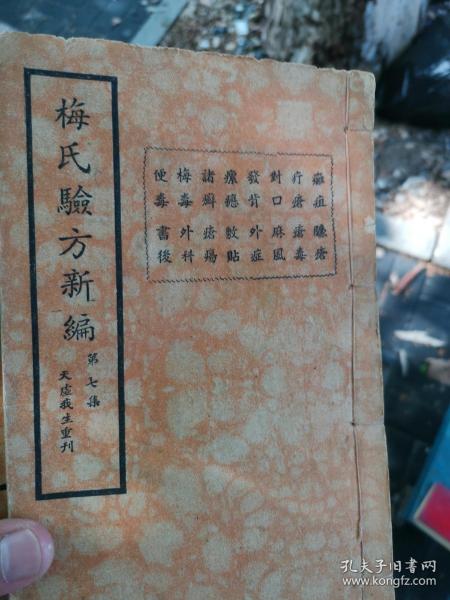 梅氏驗方新編
第七集
天虛我生重刊
癰疽臁瘡
疔瘡瘡毒
對口麻風
發背外症
瘰癧敷貼
諸癬瘡瘍
梅毒外科
便毒書後
孔夫子旧书网
www.kongfz.com